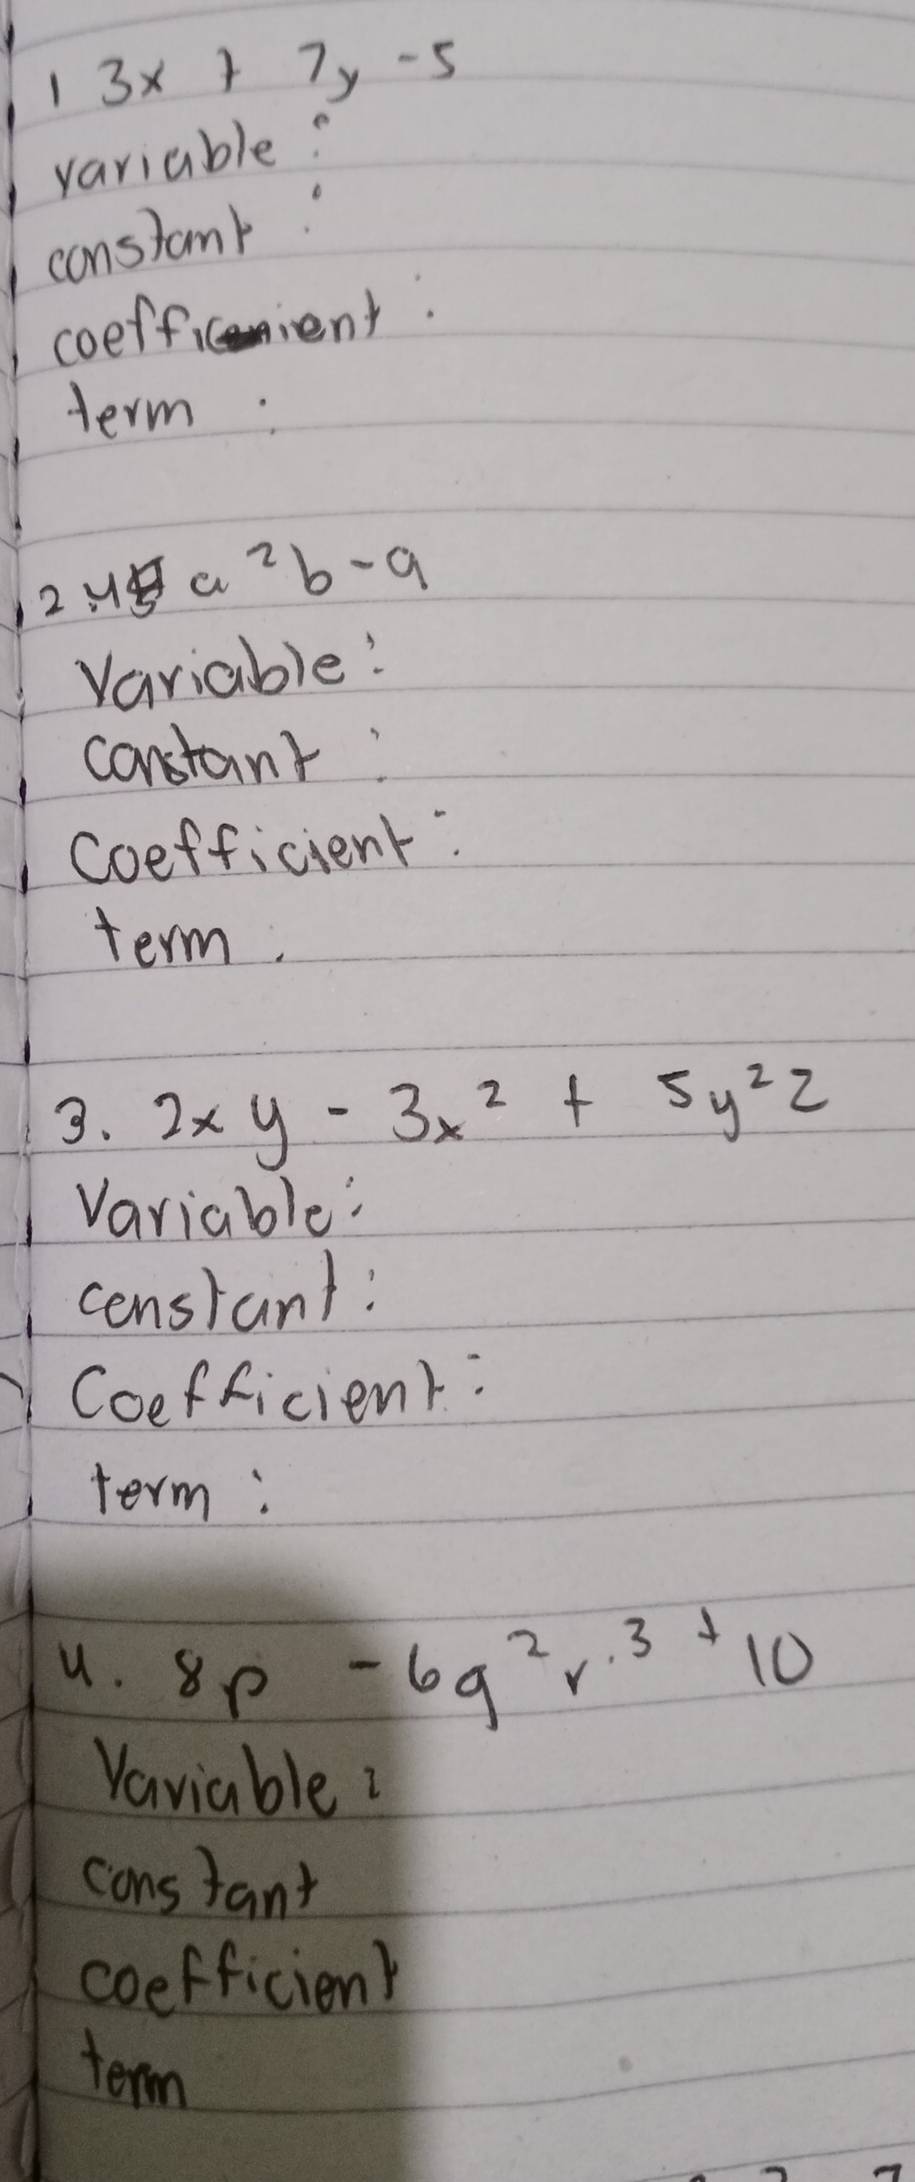 1 3x + 7y -5
variable:
constant:
coefficient:
term:
2. 4 a²b-9
Variable:
constant:
Coefficient:
term.
3. 2xy - 3x² + 5y²z
Variable:
constant:
Coefficient:
term:
4. 8p -6q²r³ + 10
Variable:
constant
coefficient
term